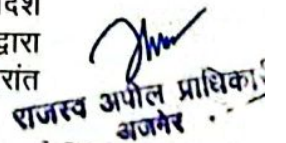 देश
द्वारा
रांत
राजस्व अपील प्राधिका
अजमेर